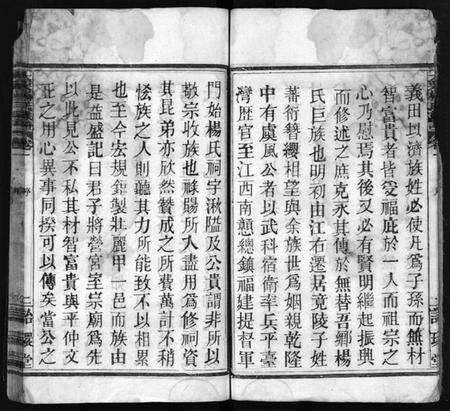 義田以濟族姓必使凡爲子孫而無材
智富貴者皆受福庇於一人而祖宗之
心乃慰焉其後又必有賢明繼起振興
而修述之庶克永其傳於無替吾鄉楊
氏巨族也明初由江右遷居竟陵子姓
蕃衍簪纓相望與余族世爲姻親乾隆
中有虞風公者以武科宿衛率兵平臺
灣歷官至江西南贛總鎮福建提督軍
門始楊氏祠宇湫隘及公貴謂非所以
敬宗收族也祿賜所入盡用爲修祠資
其昆弟亦欣然贊成之所費萬計不稍
恡族之人則聽其力所能致不以相累
也至今宏規鉅製壯麗甲一邑而族由
是益盛記曰君子將營宮室宗廟爲先
以此見公不私其材智富貴與平仲文
正之用心異事同揆可以傳矣當公之